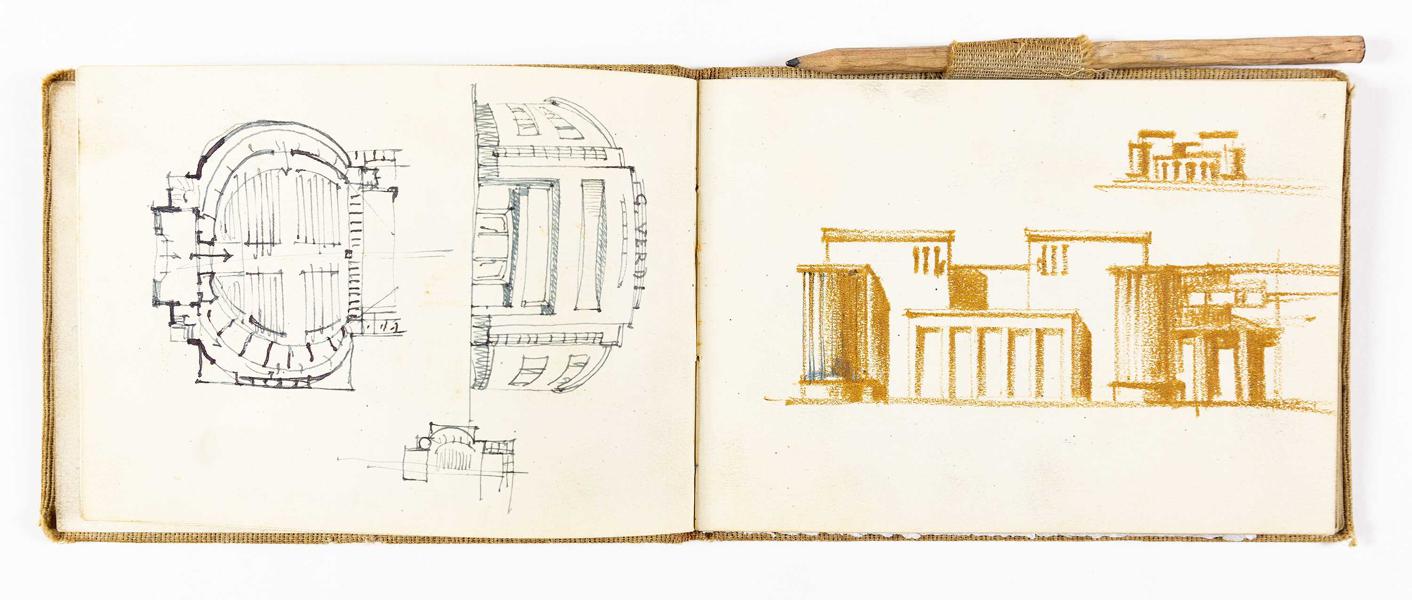 G. VERDI